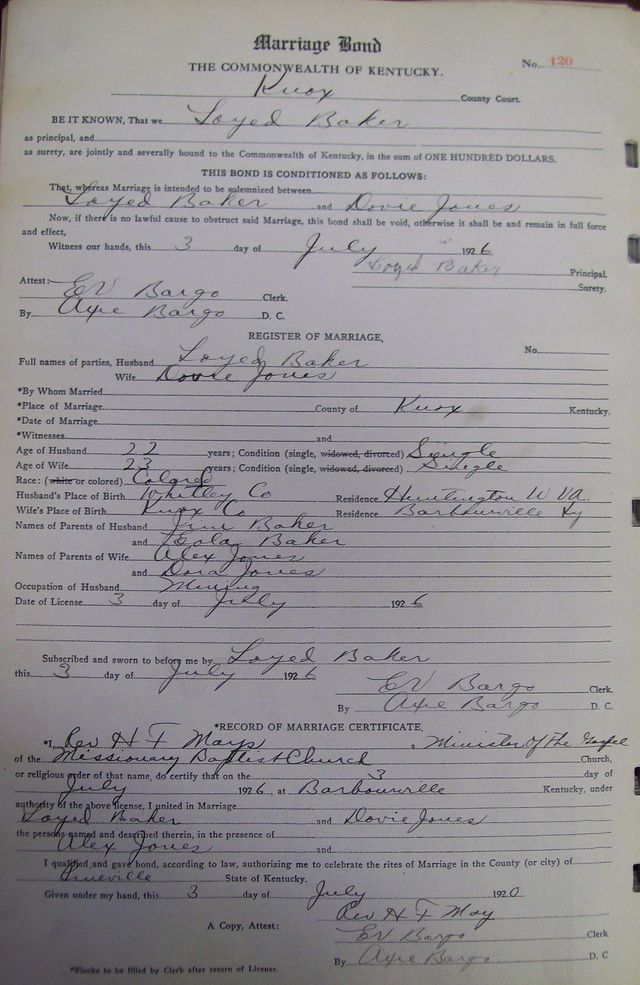 Marriage Bond
No. 120
THE COMMONWEALTH OF KENTUCKY.
Knox County Court.
BE IT KNOWN, That we Loyed Baker
as principal, and
as surety, are jointly and severally bound to the Commonwealth of Kentucky, in the sum of ONE HUNDRED DOLLARS.
THIS BOND IS CONDITIONED AS FOLLOWS:
That, whereas Marriage is intended to be solemnized between
Loyed Baker and Dovie Jones
Now, if there is no lawful cause to obstruct said Marriage, this bond shall be void, otherwise it shall be and remain in full force
and effect,
Witness our hands, this 3 day of July 1926
Loyed Baker Principal.
Surety.
Attest: EV Bargo Clerk.
By Axie Bargo D. C.
REGISTER OF MARRIAGE,
No.
Full names of parties, Husband Loyed Baker
Wife Dovie Jones
*By Whom Married
*Place of Marriage County of Knox Kentucky.
*Date of Marriage
*Witnesses and
Age of Husband 22 years; Condition (single, widowed, divorced) Single
Age of Wife 23 years; Condition (single, widowed, divorced) Single
Race: (white or colored) Colored
Husband's Place of Birth Whitley Co Residence Huntington W VA.
Wife's Place of Birth Knox Co Residence Barbourville Ky
Names of Parents of Husband Jim Baker
and Baker
Names of Parents of Wife Alex Jones
and Dora Jones
Occupation of Husband Mining
Date of License 3 day of July 1926
Subscribed and sworn to before me by Loyed Baker
this 3 day of July 1926
EV Bargo Clerk.
By Axie Bargo D. C.
*RECORD OF MARRIAGE CERTIFICATE.
*I, Rev H F Mays a Minister Of The Gospel
of the Missionary Baptist Church Church,
or religious order of that name, do certify that on the 3 day of
July 1926, at Barbourville Kentucky, under
authority of the above license, I united in Marriage
Loyed Baker and Dovie Jones
the persons named and described therein, in the presence of
Alex Jones and
I qualified and gave bond, according to law, authorizing me to celebrate the rites of Marriage in the County (or city) of
Pineville State of Kentucky.
Given under my hand, this 3 day of July 1920
Rev H F May
A Copy, Attest: EV Bargo Clerk
By Axie Bargo D. C
*Blanks to be filled by Clerk after return of License.